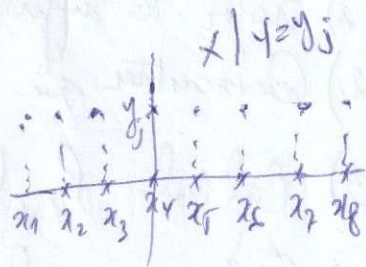 x | y = yj
yj
x1 x2 x3 x4 x5 x6 x7 x8